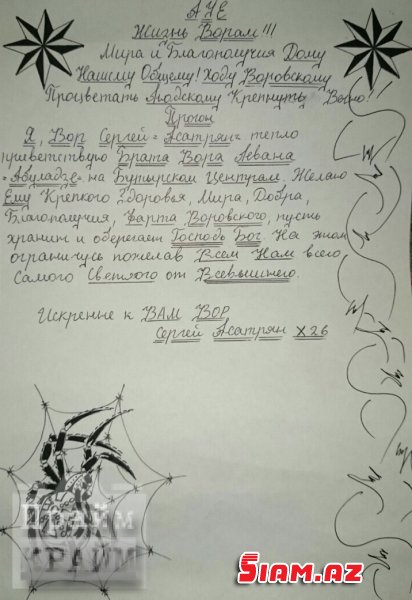 АУЕ
Жизнь Ворам!!!
Мира и Благополучия Дому
Нашему Общему! Ходу Воровскому
Процветать Людскому Крепнуть Вечно!
Прогон
Я, Вор Сергей "Асатрян" тепло
приветствую Брата Вора Левана
"Абуладзе" на Бутырском Централе. Желаю
Ему Крепкого Здоровья, Мира, Добра,
Благополучия, Фарта Воровского, пусть
хранит и оберегает Господь Бог. На этом
ограничусь пожелав Всем Нам всего
Самого Светлого от Всевышнего.
Искренне к ВАМ ВОР
Сергей Асатрян Х26
Прайм
КРАЙМ
SIAM.AZ